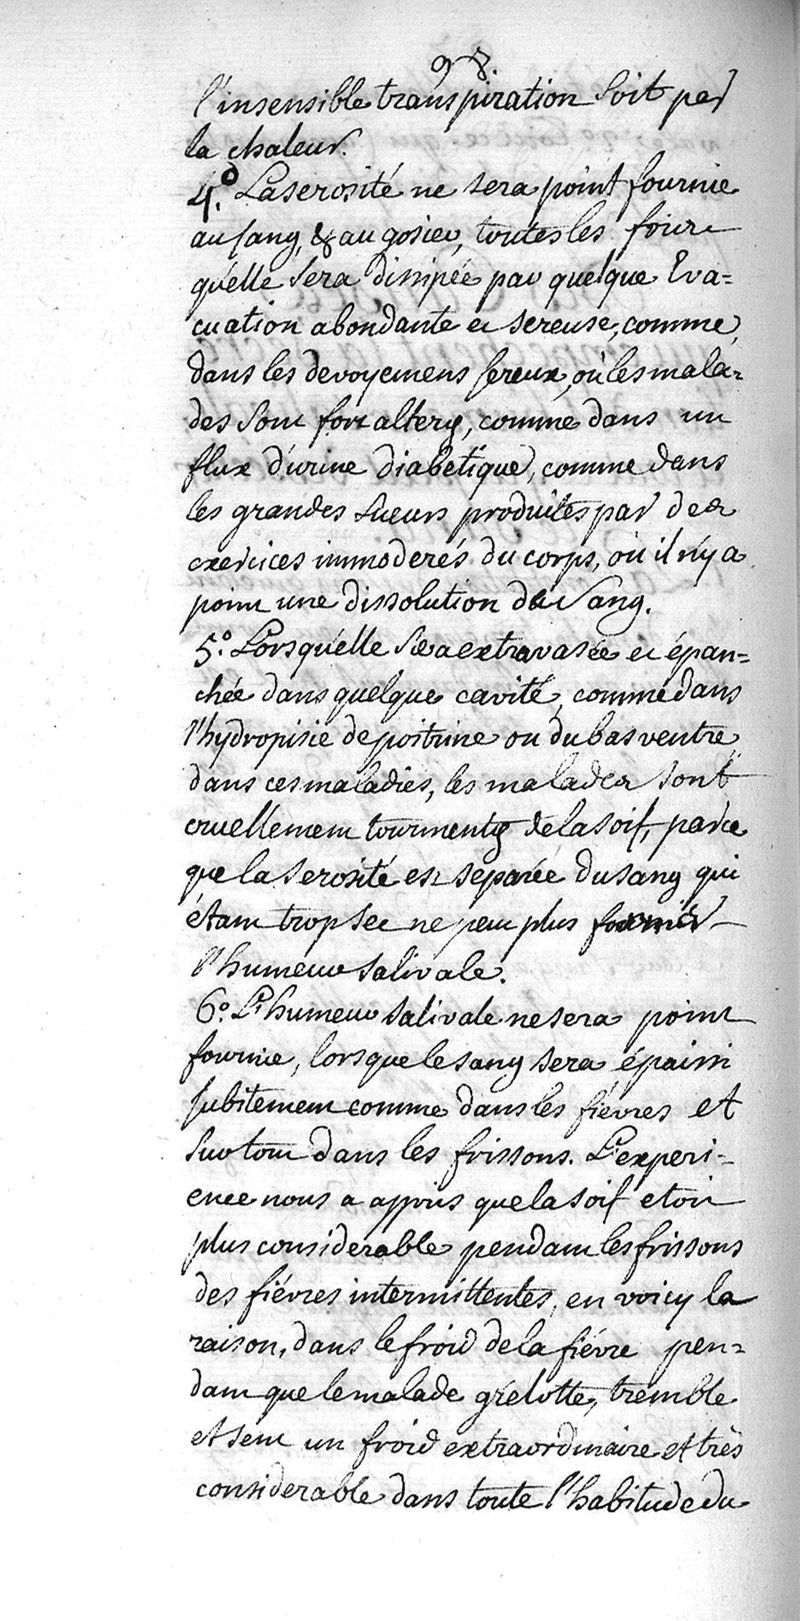 98.
l'insensible transpiration soit par
la chaleur.
4.° La serosité ne sera point fournie
au sang, & au gosier, toutes les foix
qu'elle sera dissipée par quelque Eva=
cuation abondante et sereuse, comme,
dans les devoyemens sereux, où les mala=
des sont fort alterez, comme dans un
flux d'urine diabetique, comme dans
les grandes sueurs produites par des
exercices immoderés du corps, où il n'y a
point une dissolution de sang.
5.° Lorsqu'elle sera extravasée et épan=
chée dans quelque cavité, comme dans
l'hydropisie de poitrine ou du bas ventre,
dans ces maladies, les malades sont
cruellement tourmentez de la soif, parce
que la serosité est separée du sang qui
étant trop sec ne peut plus fournir
l'humeur salivale.
6.° L'humeur salivale ne sera point
fournie, lorsque le sang sera épaissi
subitement comme dans les fiévres et
surtout dans les frissons. L'experi=
ence nous a appris que la soif etoit
plus considerable pendant les frissons
des fiévres intermittentes, en voicy la
raison, dans le froid de la fiévre pen=
dant que le malade grélotte, tremble
et sent un froid extraordinaire et très
considerable dans toute l'habitude du